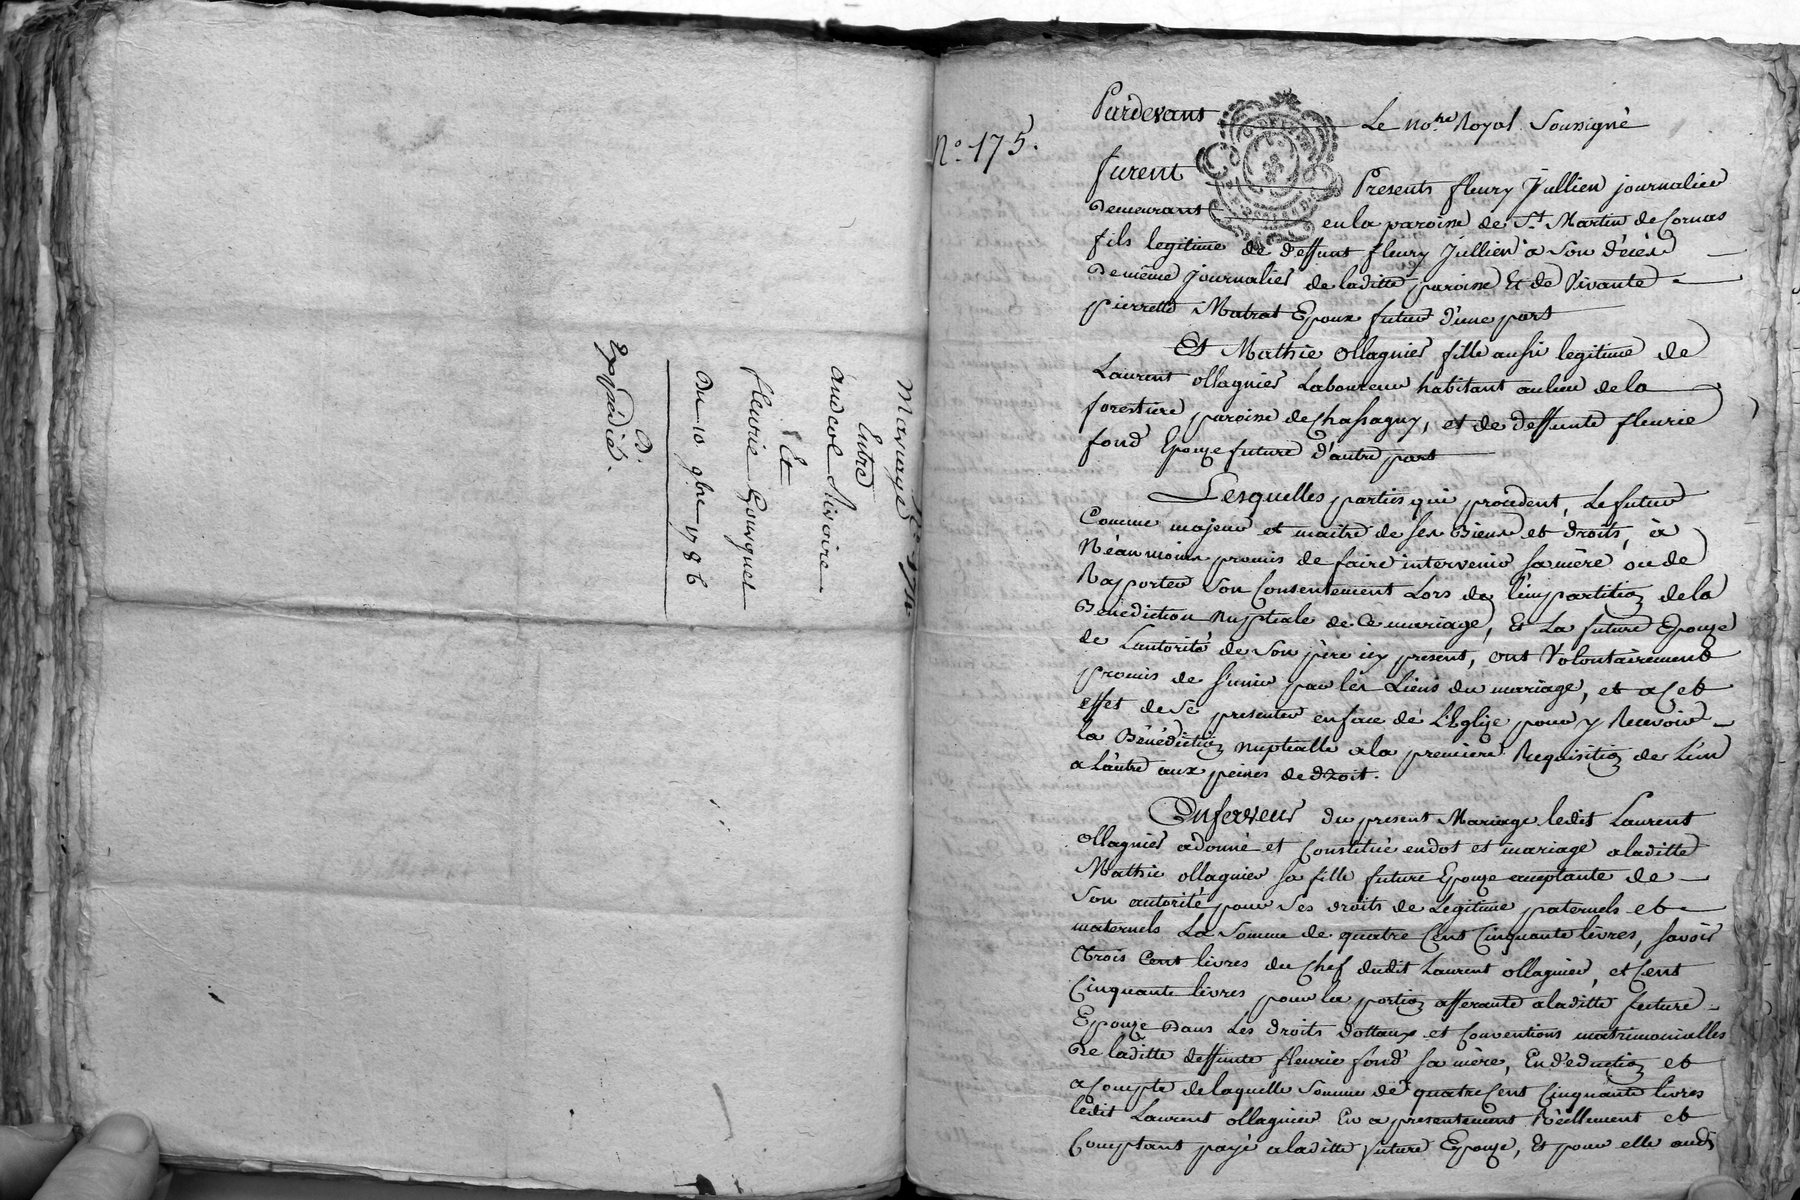 Mariage
Entre
andeol Rivoire
Et
fleurie Gourguet
Du 10 9bre 1786
Expédié.
N.o 175.
Pardevant Le No.re Royal Soussigné
furent Presents fleury Jullien journalier
Demeurant en la paroisse de St. Martin de Cornas
fils legitime de deffunt fleury Jullien a Son décès
Demême journalier de laditte paroisse Et de Vivante
pierrette Matrat Epoux futur d'une part
Et Mathie ollagnier fille aussi legitime de
Laurent ollagnier Laboureur habitant au lieu de la
forestiere paroisse de Chassagny, et de deffunte fleurie
fond Epouze future d'autre part
Lesquelles parties qui procédent, Le futur
Comme majeur et maitre de ses Biens et droits, à
Néanmoins promis de faire intervenir sa mère ou de
Rapporter Son Consentement Lors de l'impartition de la
Bénédiction Nuptiale de Ce mariage, Et La future Epouze
de Lautorité de Son père icy present, ont Volontairement
promis de s'unir par les Liens du mariage, et a Cet
effet de Se presenter en face de L'Eglize pour y Recevoir
La Bénédiction Nuptialle a la premiere Requisition de L'un
a Lautre aux peines de droit.
En faveur du present Mariage ledit Laurent
ollagnier a donné et Constitué en dot et mariage a laditte
Mathie ollagnier sa fille future Epouze acceptante de
Son autorité pour Ses droits de Legitime paternels et
maternels La Somme de quatre Cent Cinquante livres, savoir
Trois Cent livres du Chef dudit Laurent ollagnier, et Cent
Cinquante livres pour la portion afferante a laditte future
Epouze Dans Les droits dottaux et Conventions matrimonialles
De laditte deffunte fleurie fond sa mère, En déduction et
a Compte de laquelle Somme de quatre Cent Cinquante livres
ledit Laurent ollagnier En a presentement Réellement et
Comptant payé a laditte future Epouze, Et pour elle audt